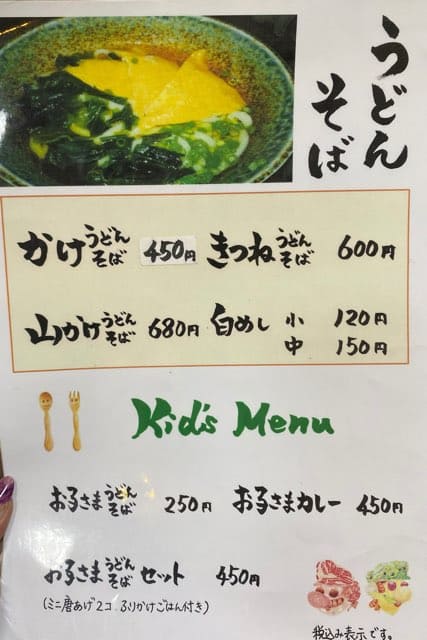 うどん
そば
かけ うどん そば 450円
きつね うどん そば 600円
山かけ うどん そば 680円
白めし 小 120円
中 150円
Kid's Menu
お子さま うどん そば 250円
お子さまカレー 450円
お子さま うどん そば セット 450円
(ミニ唐あげ2コ ふりかけごはん付き)
税込み表示です。